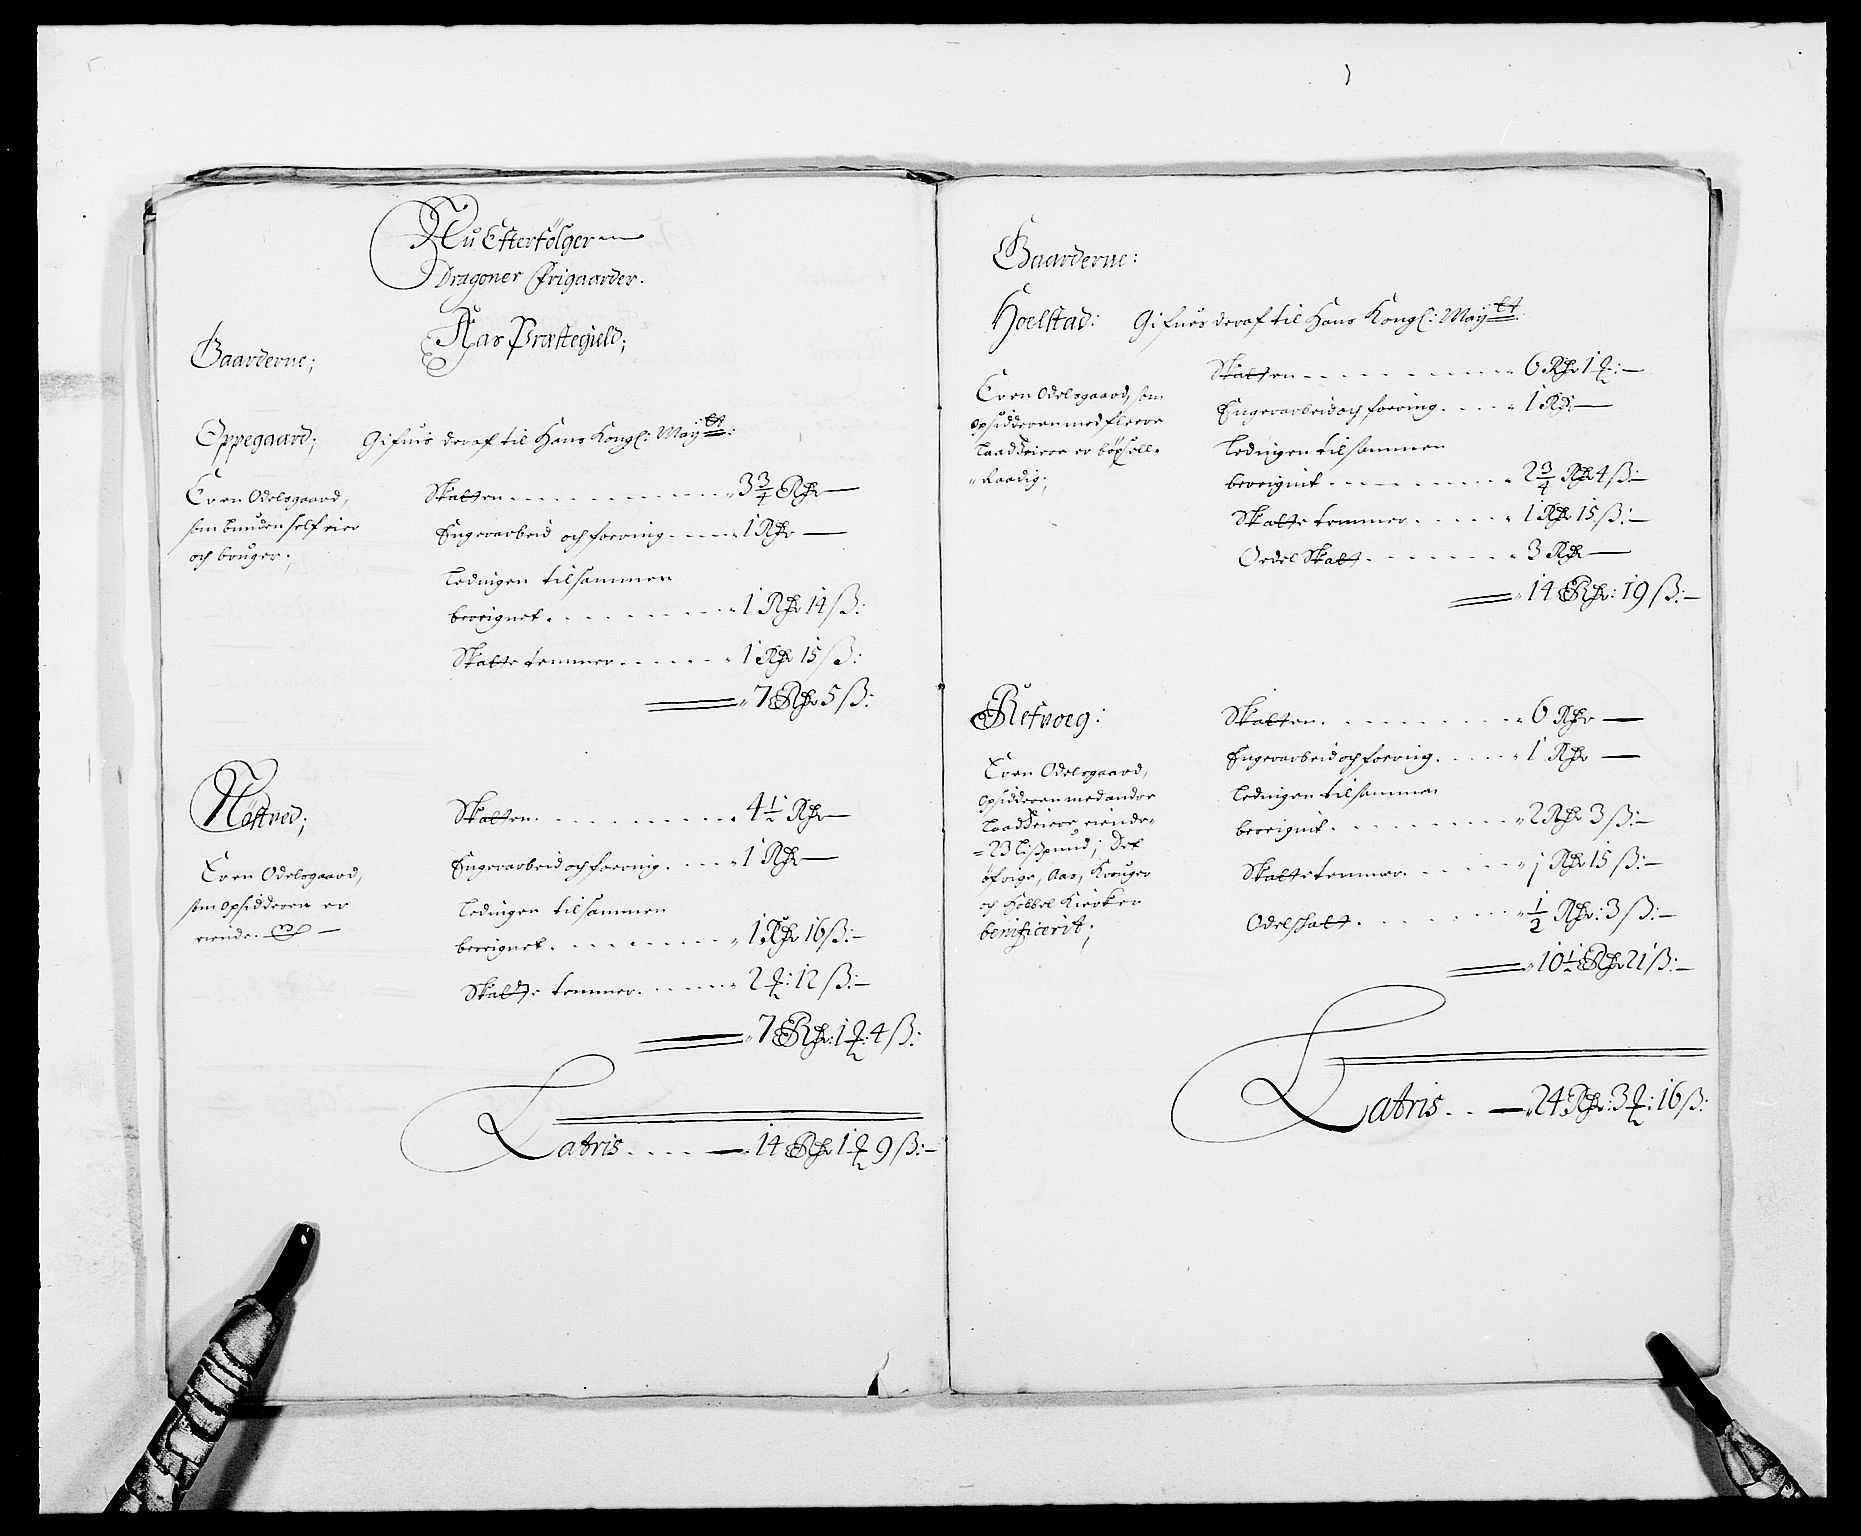 Nu Efterfölger
Dragoner Frigaarder.
Aas Præstegield;
Gaarderne;
Oppegaard; Gifuis deraf til Hans Kongl: Maytt:
Er en Odelsgaard,
som bunden self eier
och bruger;
Skatten . . . . . 3 3/4 Rdr —
Engerarbeid och foering . . . . 1 Rdr —
Ledingen tilsammen
bereignet . . . . . 1 Rdr 14 ß:
Skatte tømmer . . . . . 1 Rdr 15 ß:
7 Rdr 5 ß:
Nöstved;
Er en Odelsgaard,
som opsidderen er
eiende. —
Skatten . . . . . 4 1/2 Rdr —
Engerarbeid och foering . . . . 1 Rdr —
Ledingen tilsammen
bereignet . . . . . 1 Rdr 16 ß:—
Skatte tømmer . . . . . 2 ₰: 12 ß:—
7 Rdr: 1 ₰: 4 ß:
Latris . . . . — 14 Rdr 1 ₰ 9 ß:—
Gaarderne:
Hoelstad: Gifues deraf til Hans Kongl: Maytt:
Er en Odelsgaard, som
opsidderen med fleere
Laadzeiere er böxell-
Raadig;
Skatten . . . . . 6 Rdr 1 ₰:—
Engerarbeid och foering . . . . 1 Rdr —
Ledingen tilsammen
bereignit . . . . . 2 3/4 Rdr 4 ß:—
Skatte tømmer . . . . . 1 Rdr 15 ß:—
Oedel Skatt . . . . . 3 Rdr —
14 Rdr: 19 ß:—
Refvoeg:
Er en Odelsgaard,
opsidderen med andre
Laadzeiere eiende-
23 Lißpund; Det
öfrige, Aas, Kroger
och Kircker
benificerit;
Skatten . . . . . 6 Rdr —
Engerarbeid och foering . . . . 1 Rdr —
Ledingen tilsammen
bereignit . . . . . 2 Rdr 3 ß:—
Skatte tømmer . . . . . 1 Rdr 15 ß:—
Odelskatt . . . . . 1/2 Rdr: 3 ß:—
10 1/2 Rdr 21 ß:—
Latris . . — 24 Rdr: 3 ₰: 16 ß: